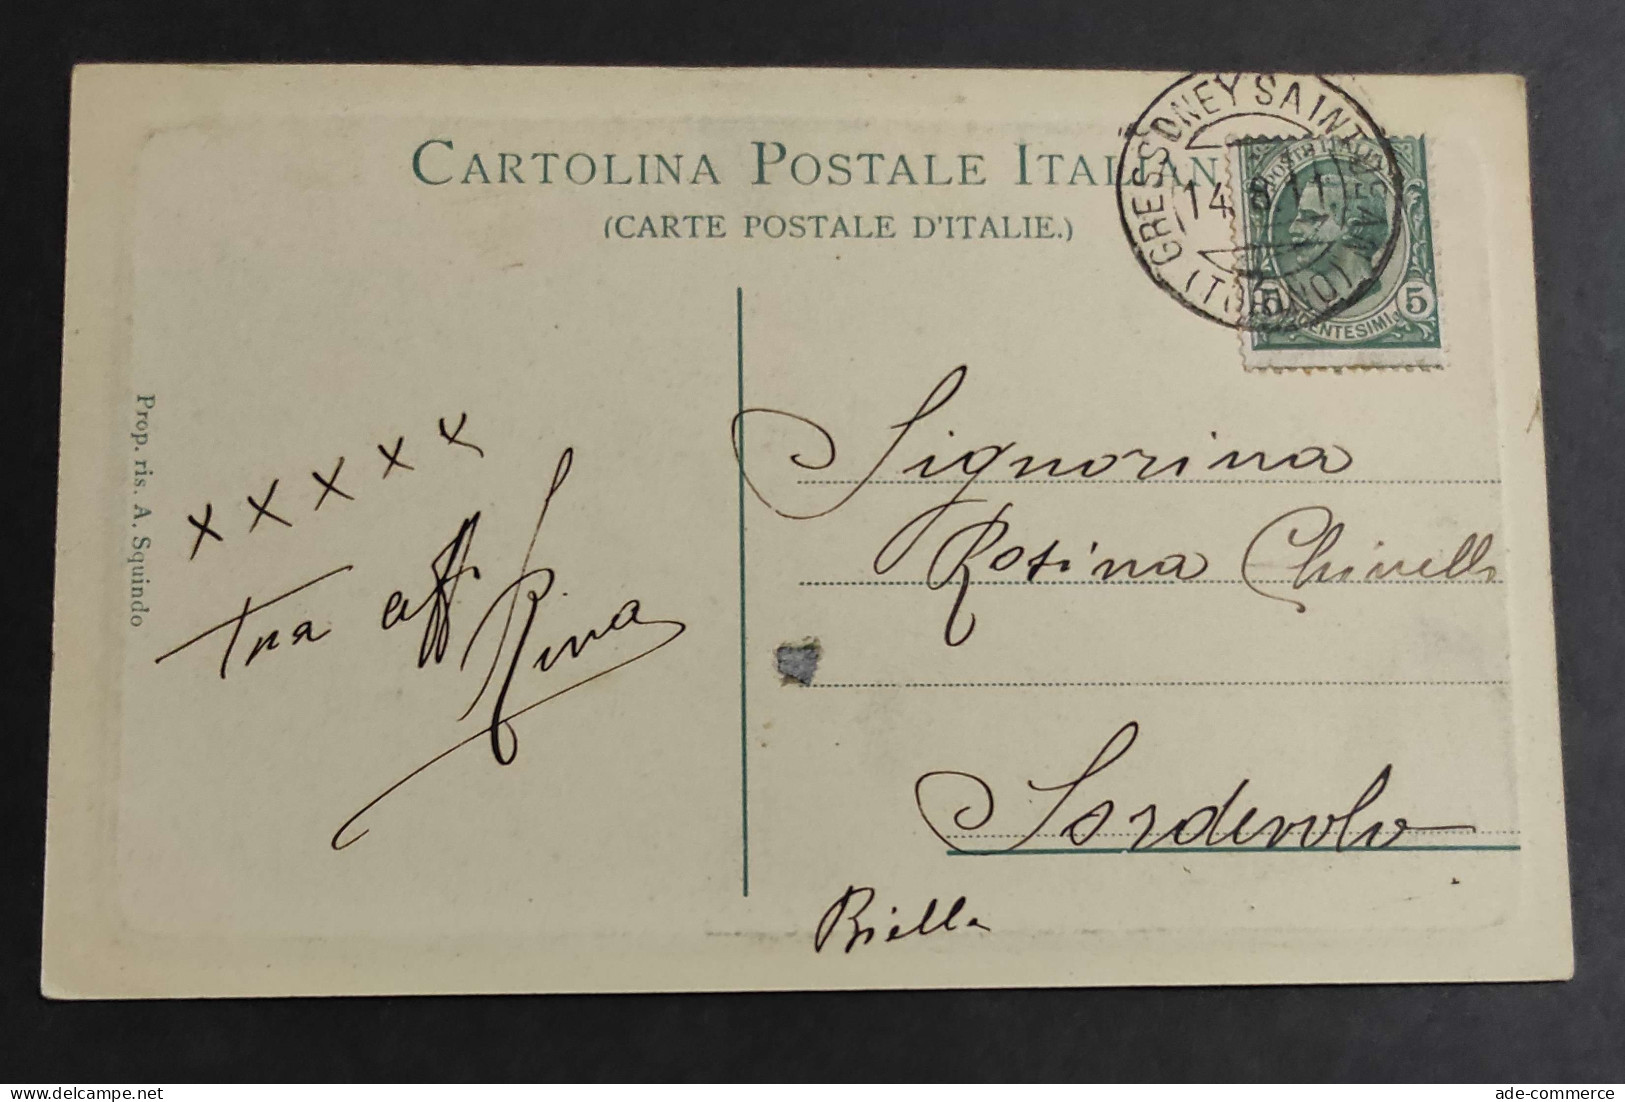 CARTOLINA POSTALE ITALIAN
(CARTE POSTALE D'ITALIE.)
GRESSONEY SAINT JEAN
(TORINO)
14.8.11
POSTE ITALIANE
5 5
CENTESIMI
Prop. ris. A. Squindo
x x x x x
Tua aff
Rina
Signorina
Rosina
Sordevolo
Biella
ade-commerce